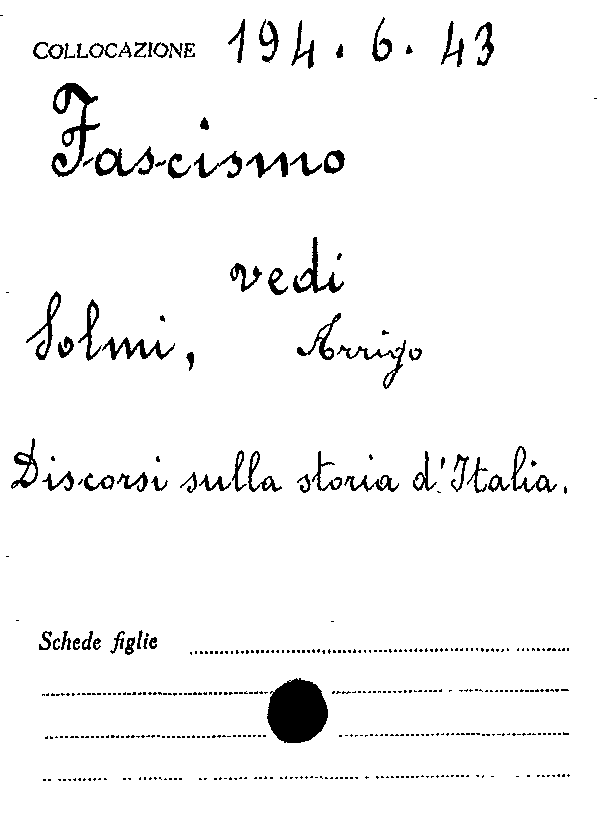 COLLOCAZIONE 194.6.43
Fascismo
vedi
Solmi, Arrigo
Discorsi sulla storia d'Italia.
Schede figlie